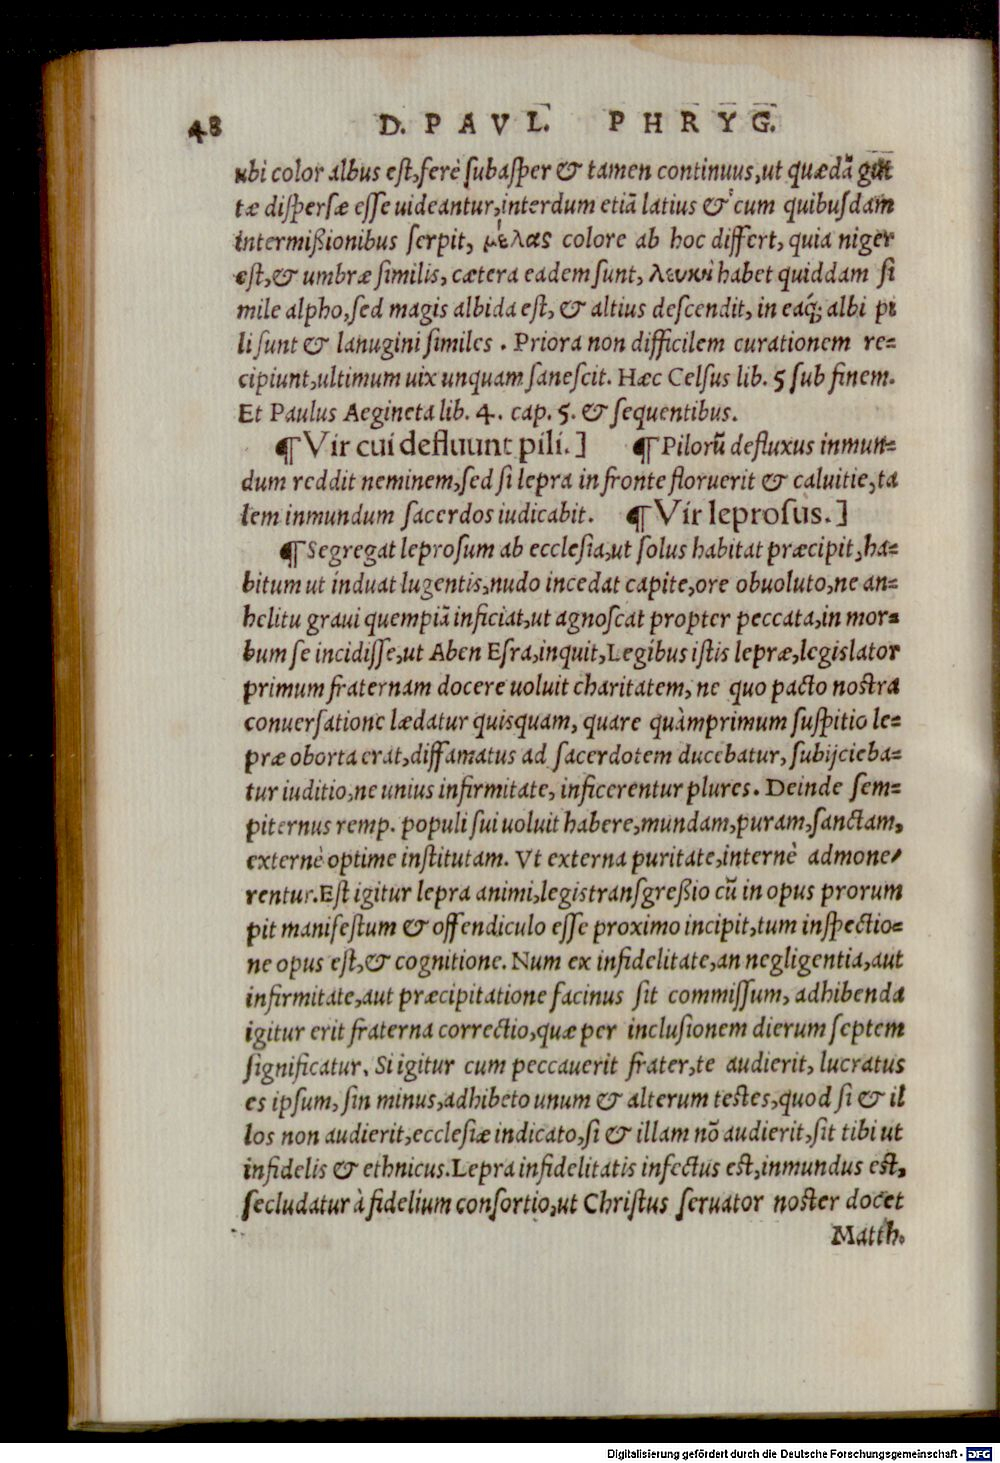 48 D. PAVL. PHRYG.
ubi color albus est, ferè subasper & tamen continuus, ut quædã gut
tæ dispersæ esse uideantur, interdum etiã latius & cum quibusdam
intermißionibus serpit, μέλας colore ab hoc differt, quia niger
est, & umbræ similis, cætera eadem sunt, λευκὴ habet quiddam si
mile alpho, sed magis albida est, & altius descendit, in eaq́; albi pi
li sunt & lanugini similes. Priora non difficilem curationem re-
cipiunt, ultimum uix unquam sanescit. Hæc Celsus lib. 5 sub finem.
Et Paulus Aegineta lib. 4. cap. 5. & sequentibus.
¶ Vir cui defluunt pili.] ¶ Pilorũ defluxus inmun-
dum reddit neminem, sed si lepra in fronte floruerit & caluitie, ta
lem inmundum sacerdos iudicabit. ¶ Vir leprosus.]
¶ Segregat leprosum ab ecclesia, ut solus habitat præcipit, ha-
bitum ut induat lugentis, nudo incedat capite, ore obuoluto, ne an-
helitu graui quempiã inficiat, ut agnoscat propter peccata, in mor-
bum se incidisse, ut Aben Esra, inquit, Legibus istis lepræ, legislator
primum fraternam docere uoluit charitatem, ne quo pacto nostra
conuersatione lædatur quisquam, quare quàmprimum suspitio le-
præ oborta erat, diffamatus ad sacerdotem ducebatur, subijcieba-
tur iuditio, ne unius infirmitate, inficerentur plures. Deinde sem-
piternus remp. populi sui uoluit habere, mundam, puram, sanctam,
externè optime institutam. Vt externa puritate, internè admone-
rentur. Est igitur lepra animi, legis transgreßio cũ in opus prorum
pit manifestum & offendiculo esse proximo incipit, tum inspectio-
ne opus est, & cognitione. Num ex infidelitate, an negligentia, aut
infirmitate, aut præcipitatione facinus sit commissum, adhibenda
igitur erit fraterna correctio, quæ per inclusionem dierum septem
significatur. Si igitur cum peccauerit frater, te audierit, lucratus
es ipsum, sin minus, adhibeto unum & alterum testes, quod si & il
los non audierit, ecclesiæ indicato, si & illam nõ audierit, sit tibi ut
infidelis & ethnicus. Lepra infidelitatis infectus est, inmundus est,
secludatur à fidelium consortio, ut Christus seruator noster docet
Matth.
Digitalisierung gefördert durch die Deutsche Forschungsgemeinschaft - DFG